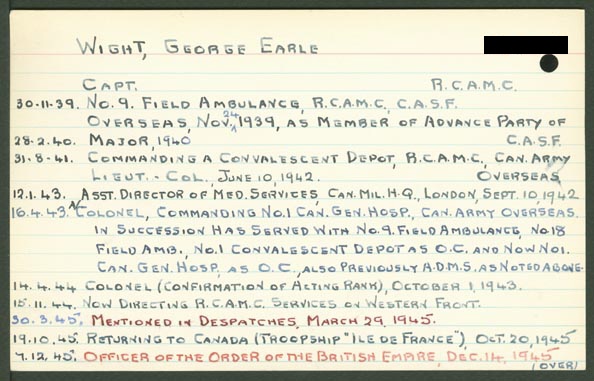 WIGHT, GEORGE EARLE
CAPT. R.C.A.M.C.
30.11.39. NO.9. FIELD AMBULANCE, R.C.A.M.C., C.A.S.F.
OVERSEAS, NOV. 24 1939, AS MEMBER OF ADVANCE PARTY OF
28.2.40. MAJOR, 1940 C.A.S.F.
31.8.41. COMMANDING A CONVALESCENT DEPOT, R.C.A.M.C., CAN. ARMY
LIEUT.-COL., JUNE 10, 1942. OVERSEAS
12.1.43. ASST. DIRECTOR OF MED. SERVICES, CAN. MIL. H.Q., LONDON, SEPT. 10, 1942
16.4.43. A/COLONEL, COMMANDING NO.1 CAN. GEN. HOSP., CAN. ARMY OVERSEAS.
IN SUCCESSION HAS SERVED WITH NO.9. FIELD AMBULANCE, NO.18
FIELD AMB., NO.1 CONVALESCENT DEPOT AS O.C. AND NOW NO.1.
CAN. GEN. HOSP., AS O.C., ALSO PREVIOUSLY A.D.M.S. AS NOTED ABOVE.
14.4.44 COLONEL (CONFIRMATION OF ACTING RANK), OCTOBER 1, 1943.
15.11.44. NOW DIRECTING R.C.A.M.C. SERVICES ON WESTERN FRONT.
30.3.45. MENTIONED IN DESPATCHES, MARCH 29, 1945.
19.10.45. RETURNING TO CANADA (TROOPSHIP "ILE DE FRANCE"), OCT. 20, 1945
7.12.45. OFFICER OF THE ORDER OF THE BRITISH EMPIRE, DEC. 14, 1945
(OVER)